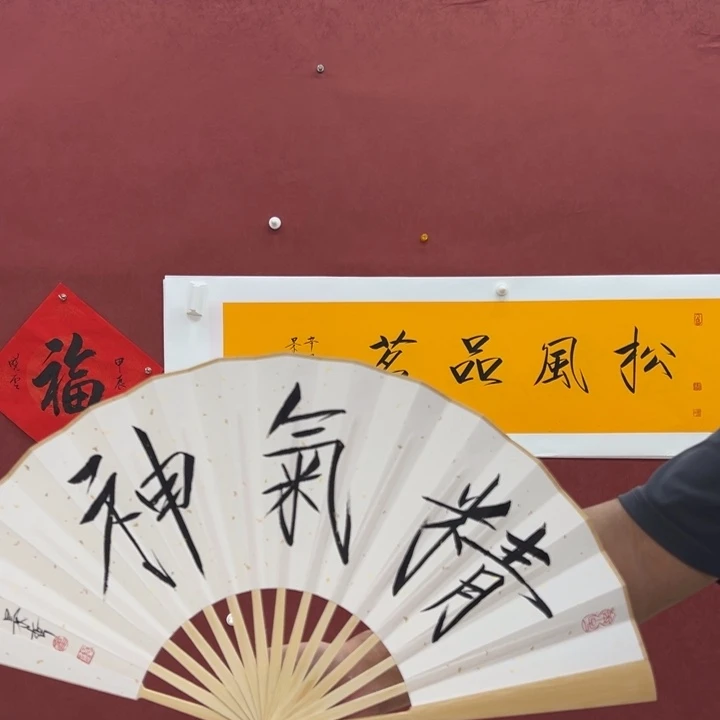 精氣神
松風品茗
福
甲辰